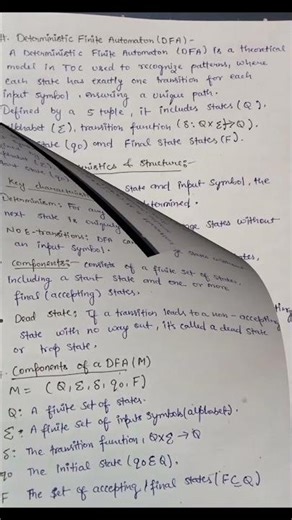 A. Deterministic Finite Automaton (DFA) -
A Deterministic Finite Automaton (DFA) is a theoretical
model in TOC used to recognize patterns, where
each state has exactly one transition for each
input symbol, ensuring a unique path.
Defined by a 5 tuple, it includes states (Q),
alphabet (Σ), transition function (δ: Q×Σ→Q),
state (q0) and Final State states (F).
& Structure:-
Key
State and input symbol, the
Determinism: For any
next state is uniquely determined.
States without
NO Ɛ-transitions: DFA
an input symbol.
Components: consists of a finite set of states,
Including a start state and one or more
final (accepting) states.
Dead state: If a transition leads to a non-accepting
state with no way out, it's called a dead state
or trap state.
Components of a DFA (M)
M = (Q, Σ, δ, q0, F)
Q: A finite set of states.
Σ: A finite set of input symbols (alphabet).
δ: The transition function, Q×Σ → Q
q0 The initial state (q0 ∈ Q).
F The set of accepting/final states (F⊆Q)